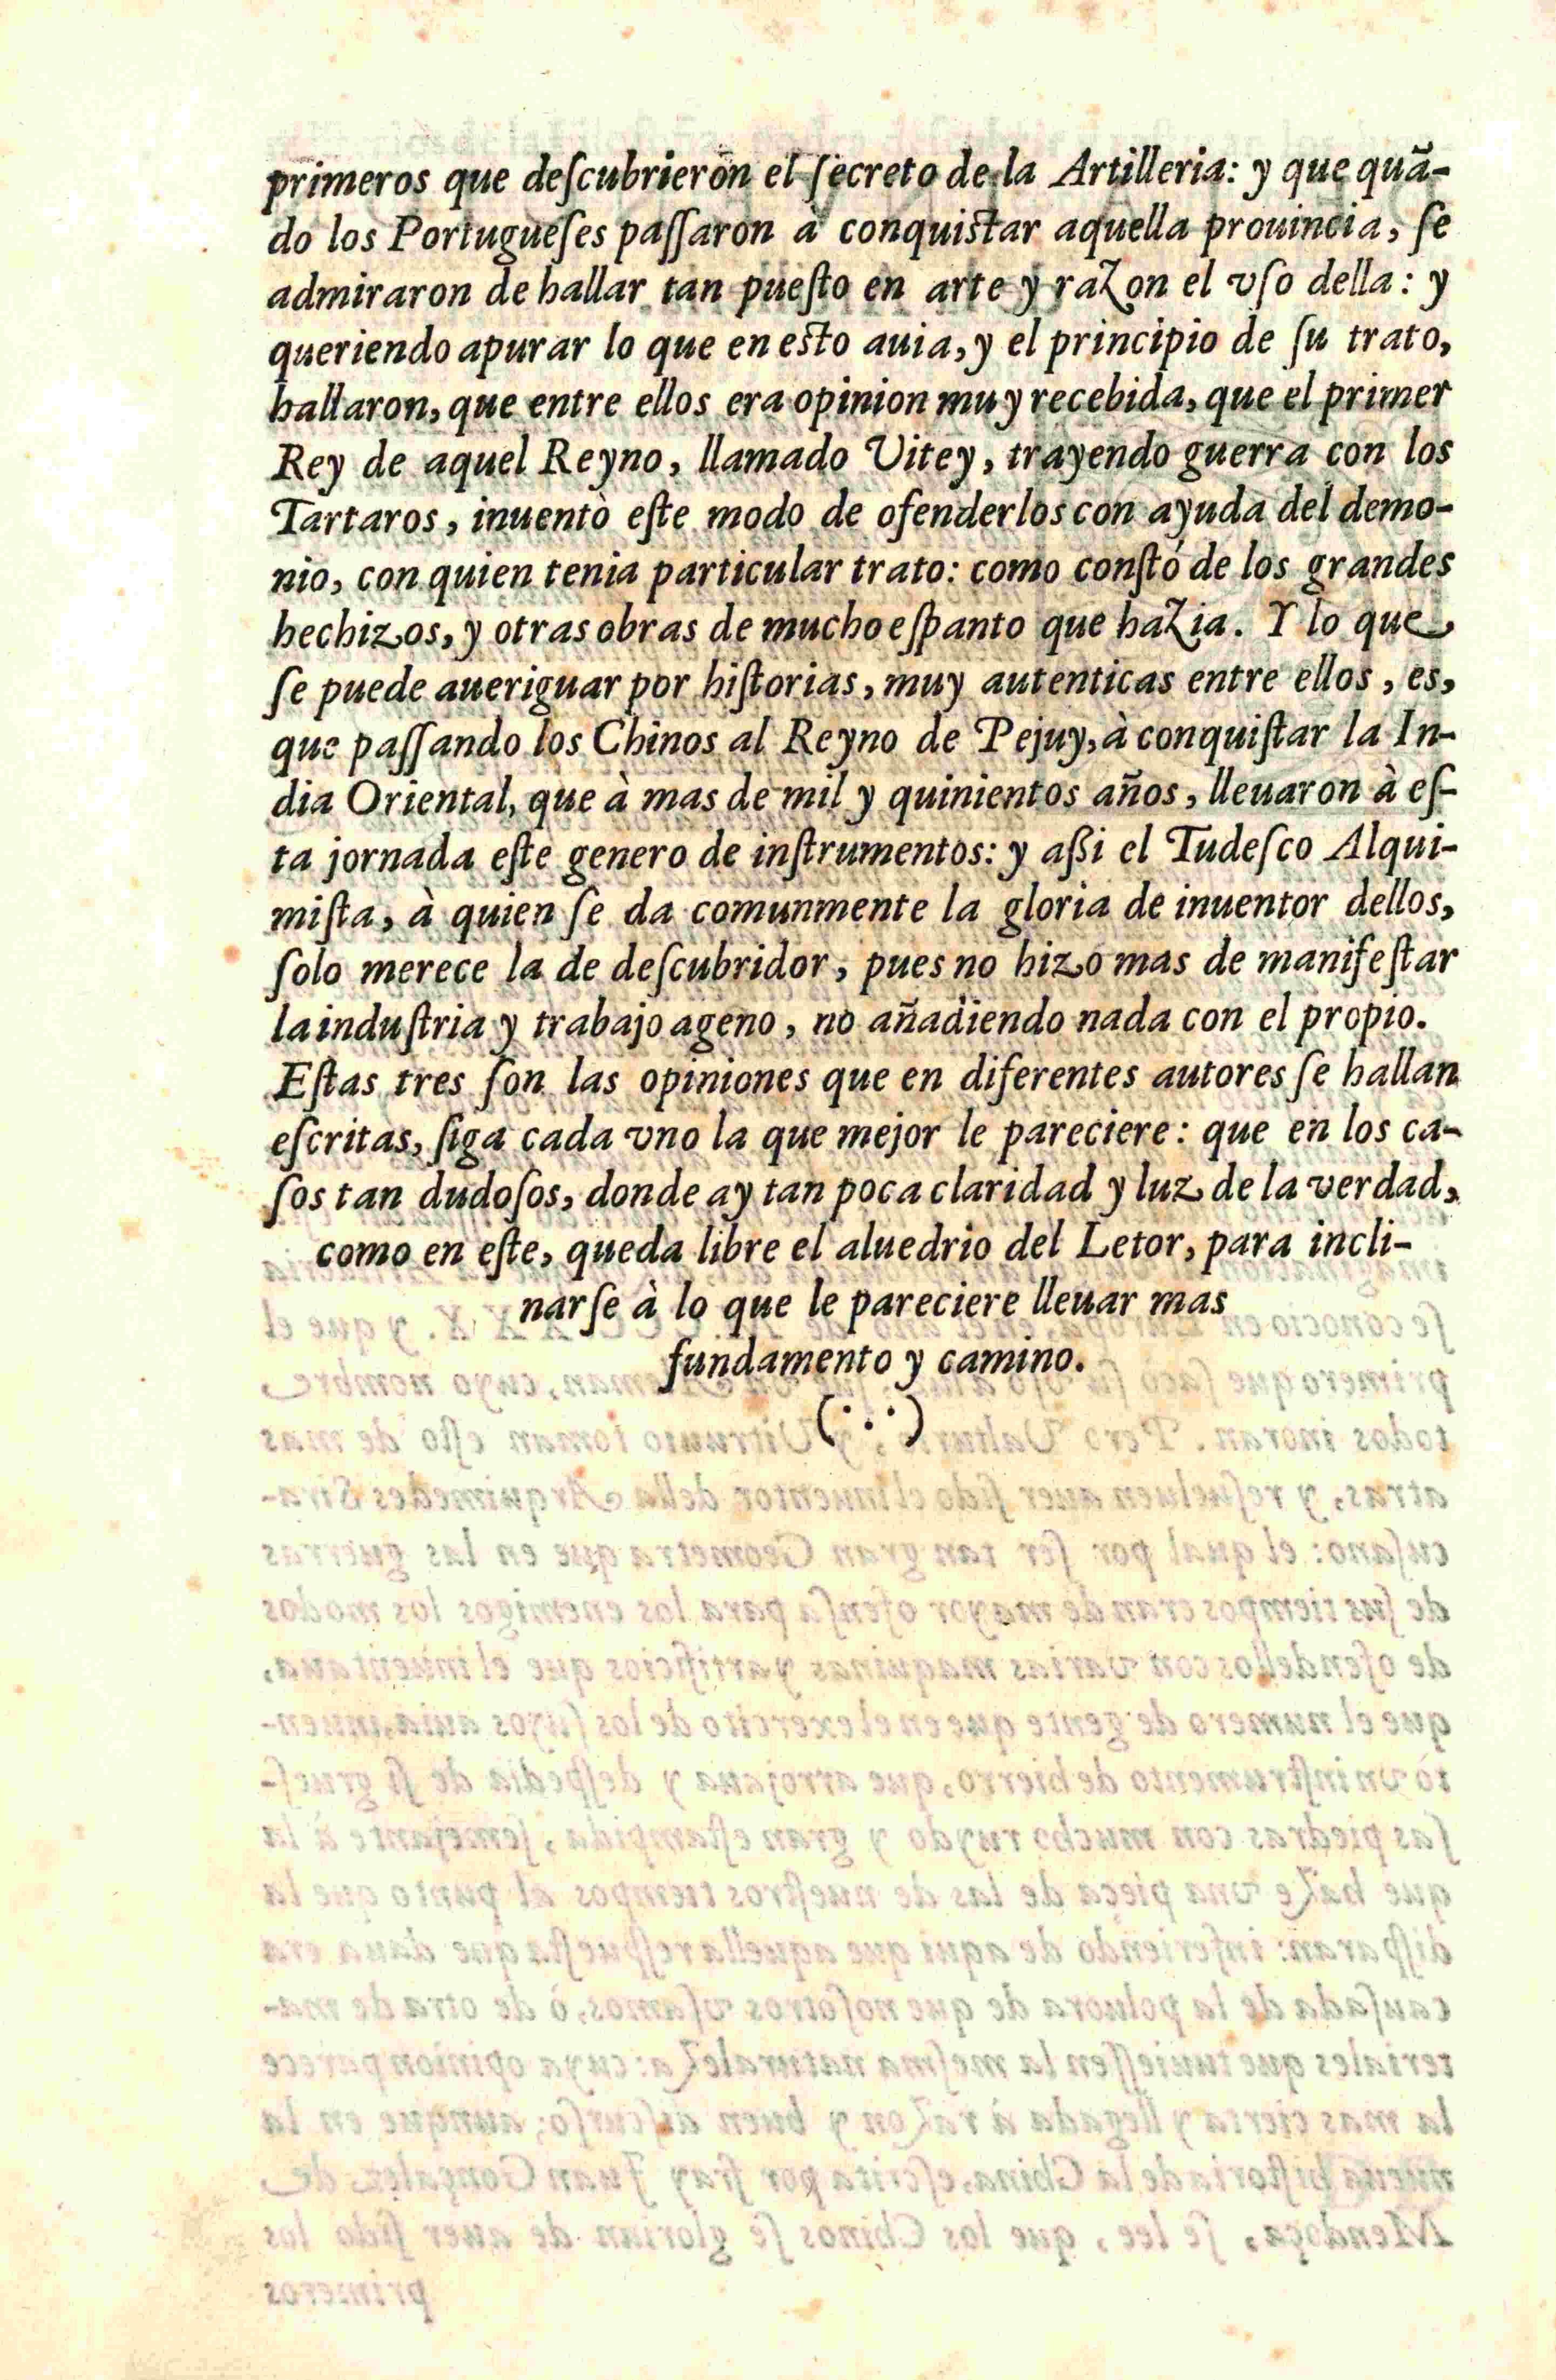 primeros que deſcubrierõn el ſecreto de la Artilleria: y que quã-
do los Portugueſes paſſaron à conquiſtar aquella prouincia, ſe
admiraron de hallar tan pueſto en arte y razon el vſo della: y
queriendo apurar lo que en eſto auia, y el principio de ſu trato,
hallaron, que entre ellos era opinion muy recebida, que el primer
Rey de aquel Reyno, llamado Vitey, trayendo guerra con los
Tartaros, inuentò eſte modo de ofenderlos con ayuda del demo-
nio, con quien tenia particular trato: como conſtó de los grandes
hechizos, y otras obras de mucho eſpanto que hazia. Y lo que
ſe puede aueriguar por hiſtorias, muy autenticas entre ellos, es,
que paſſando los Chinos al Reyno de Pejuy, à conquiſtar la In-
dia Oriental, que à mas de mil y quinientos años, lleuaron à eſ-
ta jornada eſte genero de inſtrumentos: y aſsi el Tudeſco Alqui-
miſta, à quien ſe da comunmente la gloria de inuentor dellos,
ſolo merece la de deſcubridor, pues no hizo mas de manifeſtar
la induſtria y trabajo ageno, no añadiendo nada con el propio.
Eſtas tres ſon las opiniones que en diferentes autores ſe hallan
eſcritas, ſiga cada vno la que mejor le pareciere: que en los ca-
ſos tan dudoſos, donde ay tan poca claridad y luz de la verdad,
como en eſte, queda libre el aluedrio del Letor, para incli-
narſe à lo que le pareciere lleuar mas
fundamento y camino.
(∵)